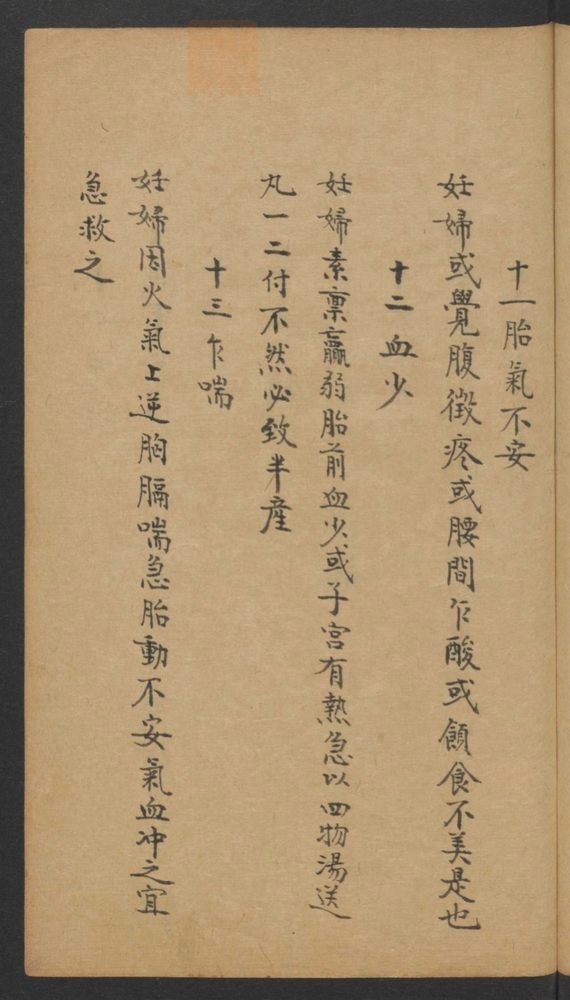 十一胎氣不安
妊婦或覺腹微疼或腰間乍酸或飲食不美是也
十二血少
妊婦素禀羸弱胎前血少或子宮有熱急以四物湯送
丸一二付不然必致半產
十三乍喘
妊婦因火氣上逆胸膈喘急胎動不安氣血冲之宜
急救之